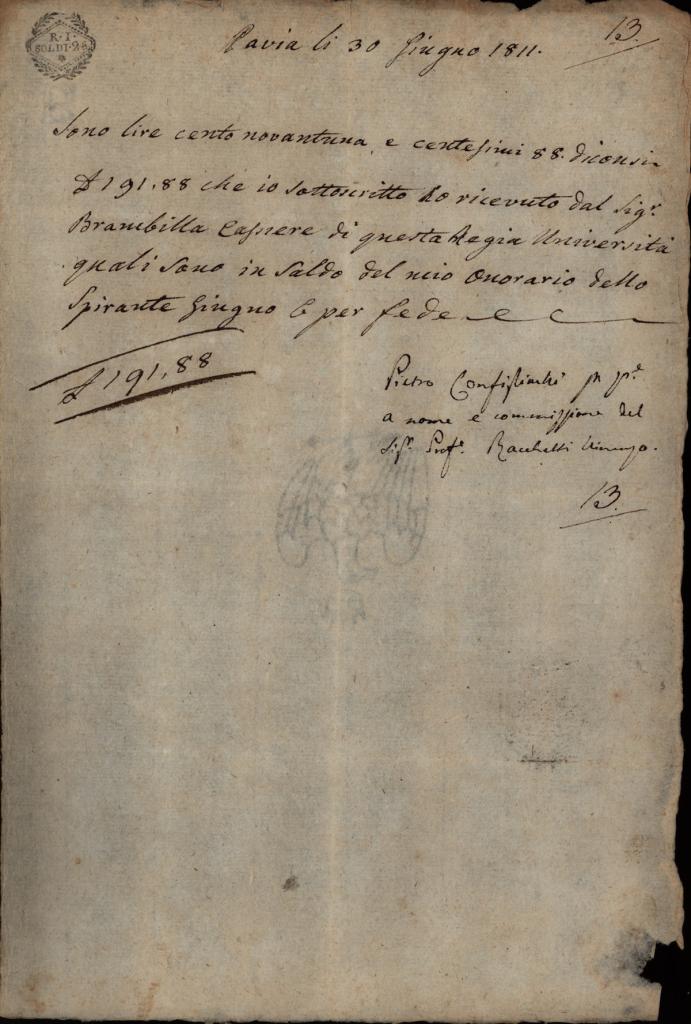 R. I.
SOLDI. 2.8
Pavia li 30 Giugno 1811.
13
Sono lire cento novantuna, e centesimi 88. diconsi
£ 191.88 che io sottoscritto ho ricevuto dal Sigr.
Brambilla Cassiere di questa Regia Università
quali sono in saldo del mio Onorario dello
Spirante Giugno E per fede
£ 191,88
Pietro Configliachi
a nome e commissione del
Sigr. Profr. Racchetti Vincenzo.
13